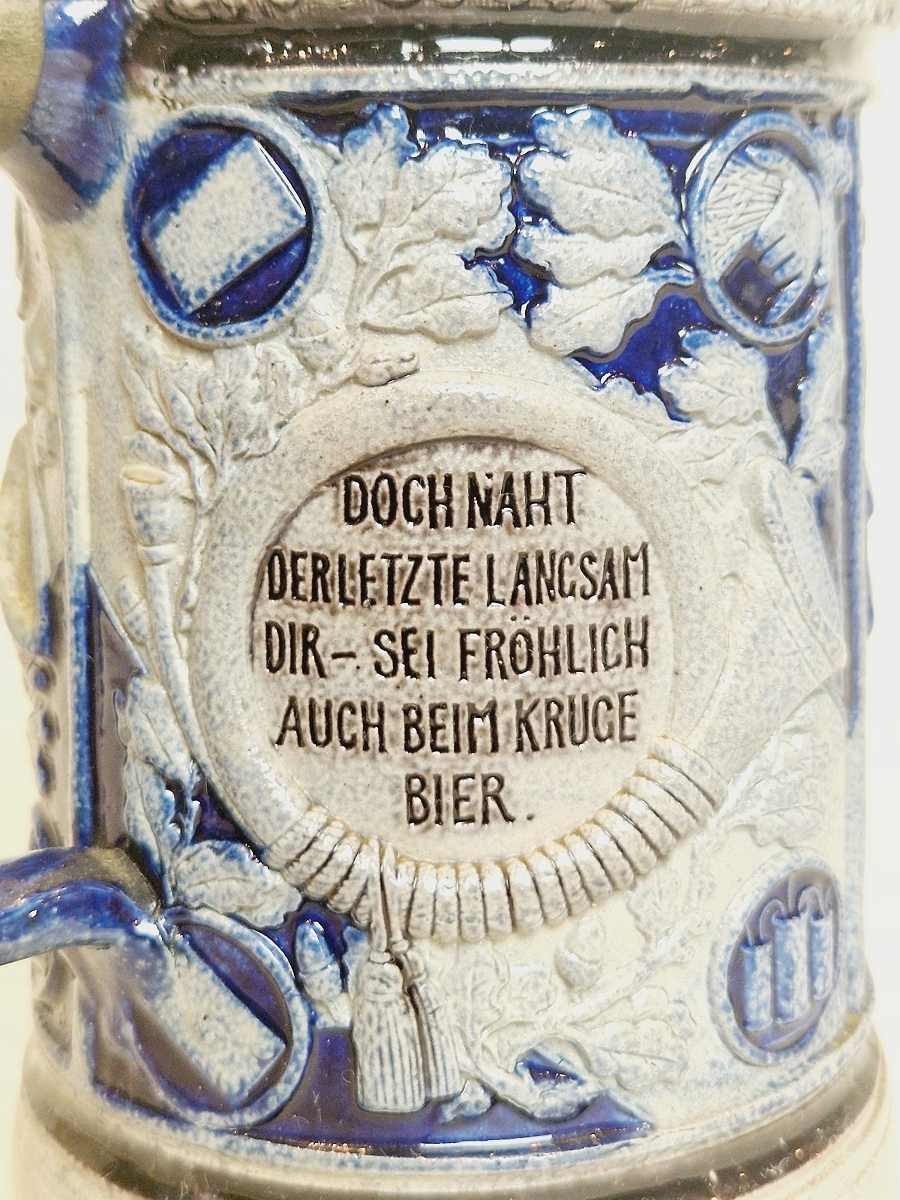 DOCH NAHT
DER LETZTE LANGSAM
DIR – SEI FRÖHLICH
AUCH BEIM KRUGE
BIER.